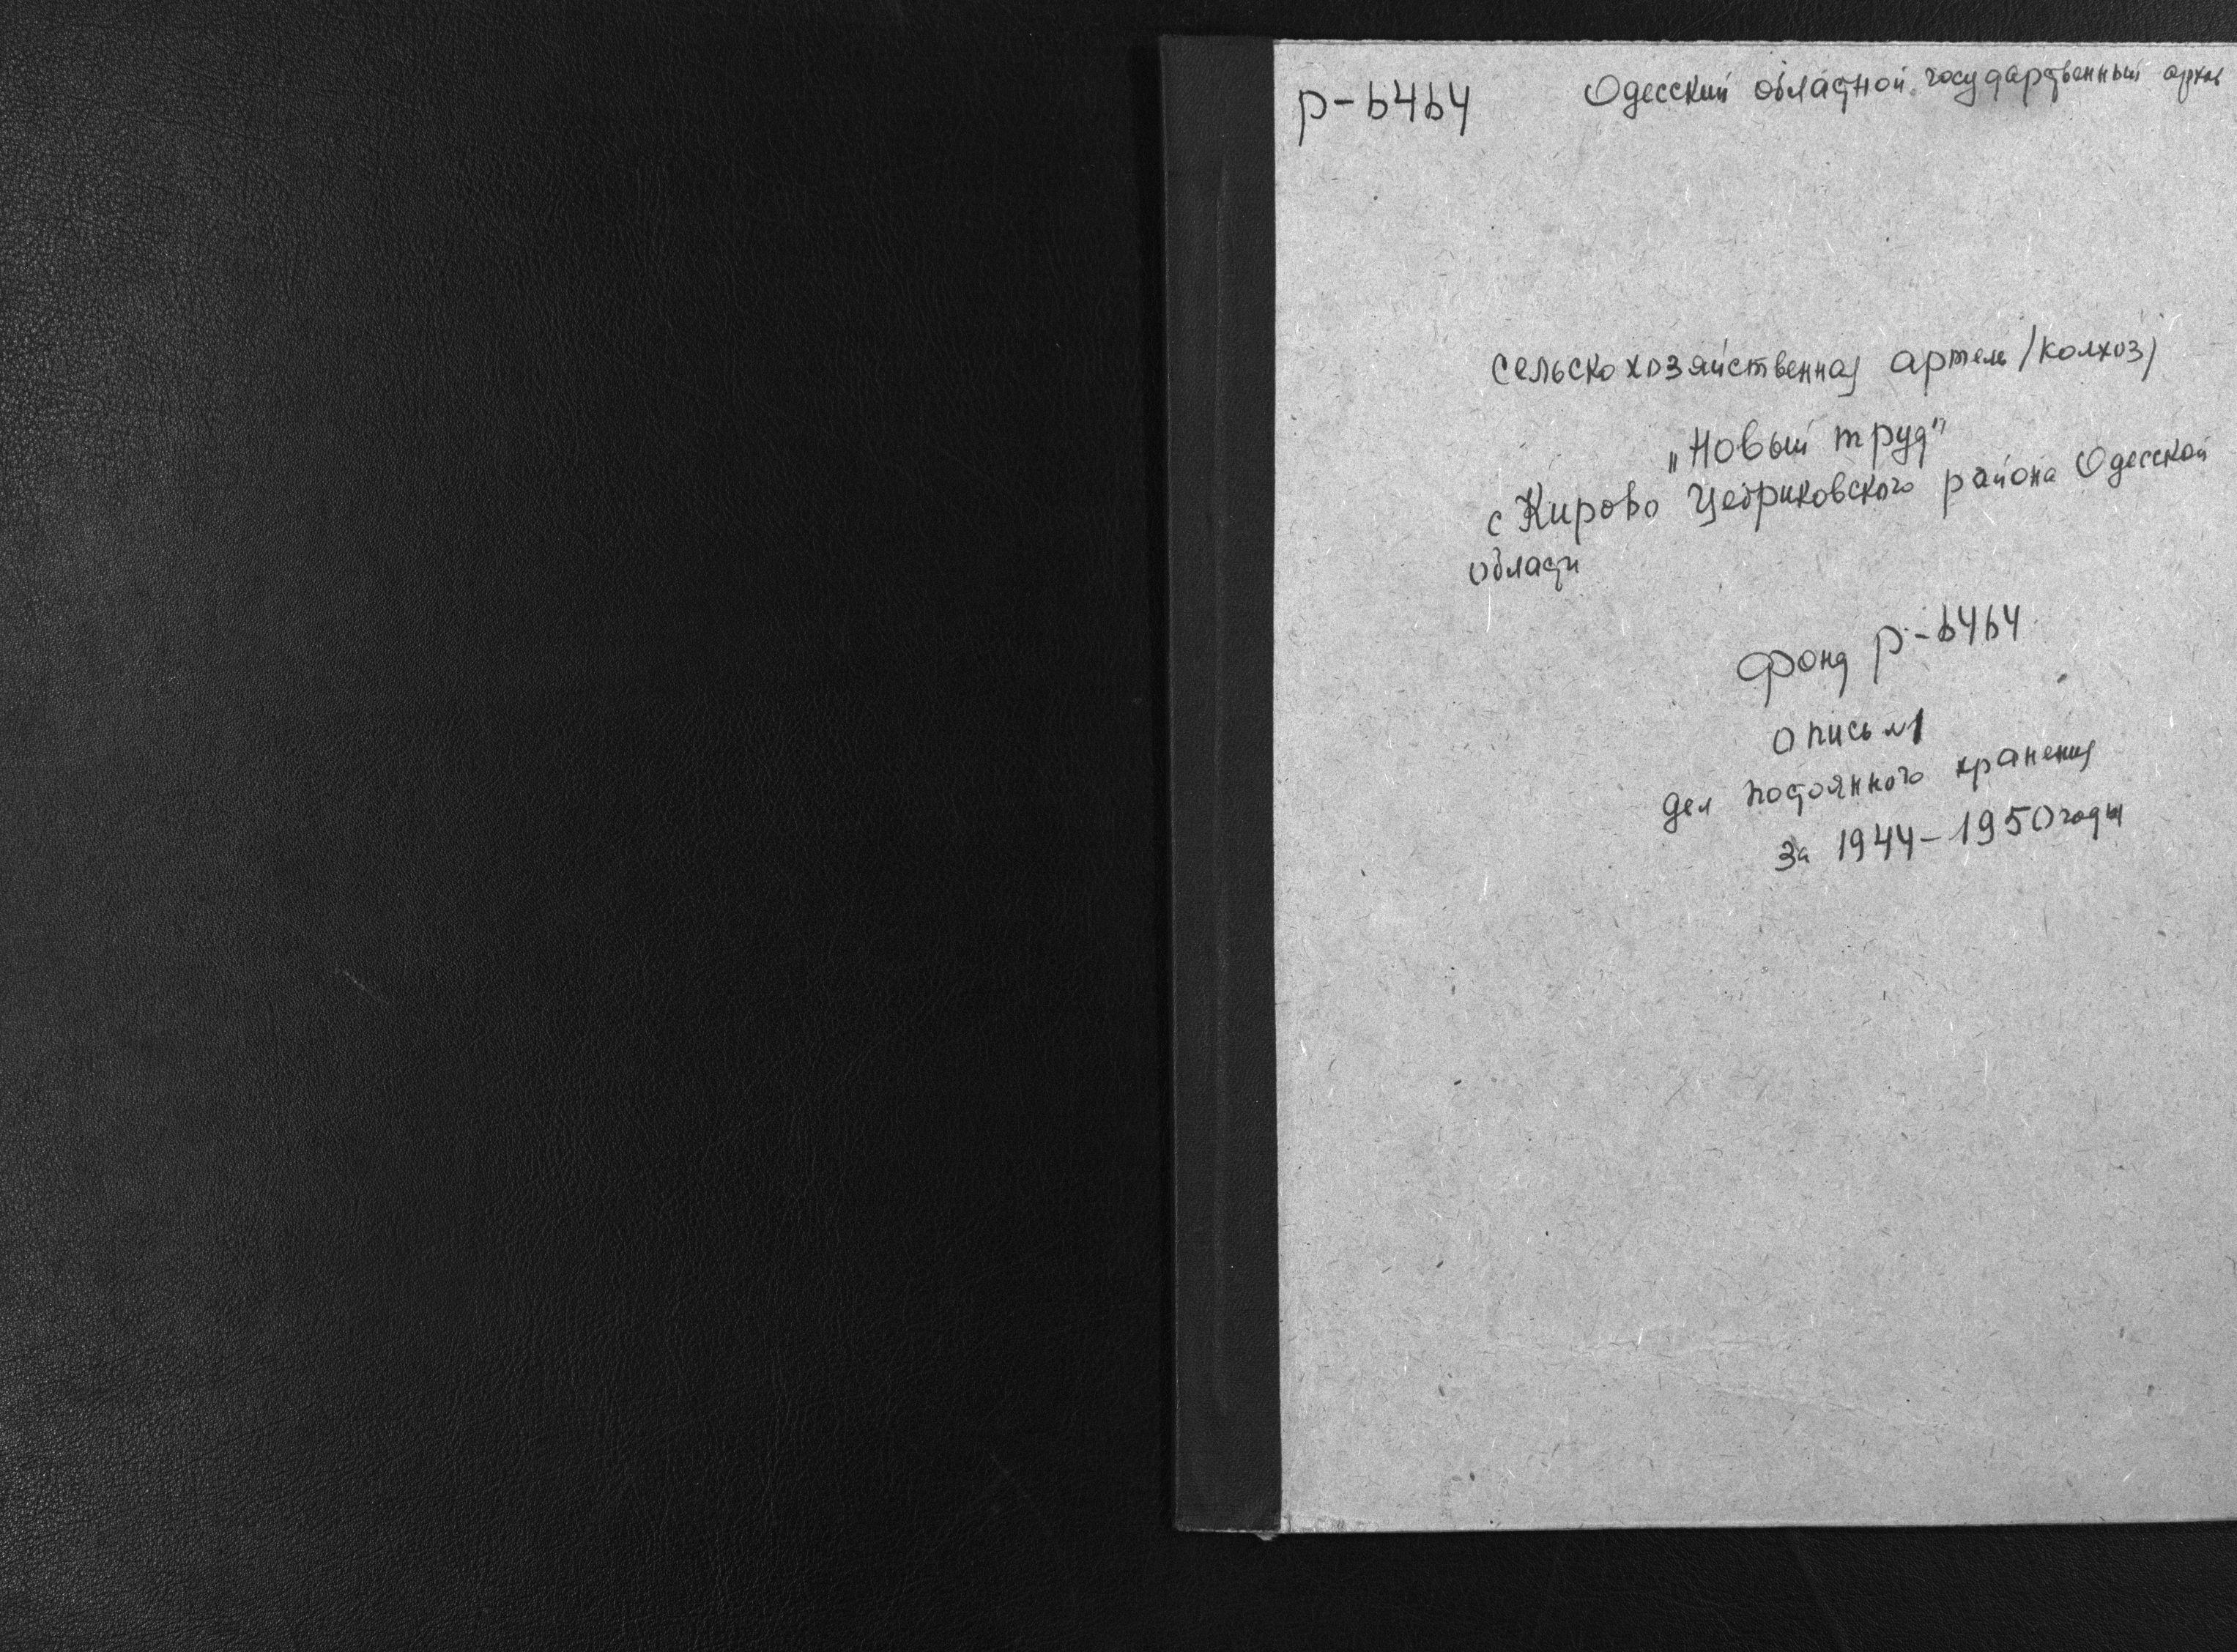 р-6464
Одесский областной государственный архив
сельскохозяйственная артель /колхоз/
„Новый труд"
с Кирово Цебриковского района Одесской
области
Фонд р-6464
Опись №1
дел постоянного хранения
за 1944-1950 годы